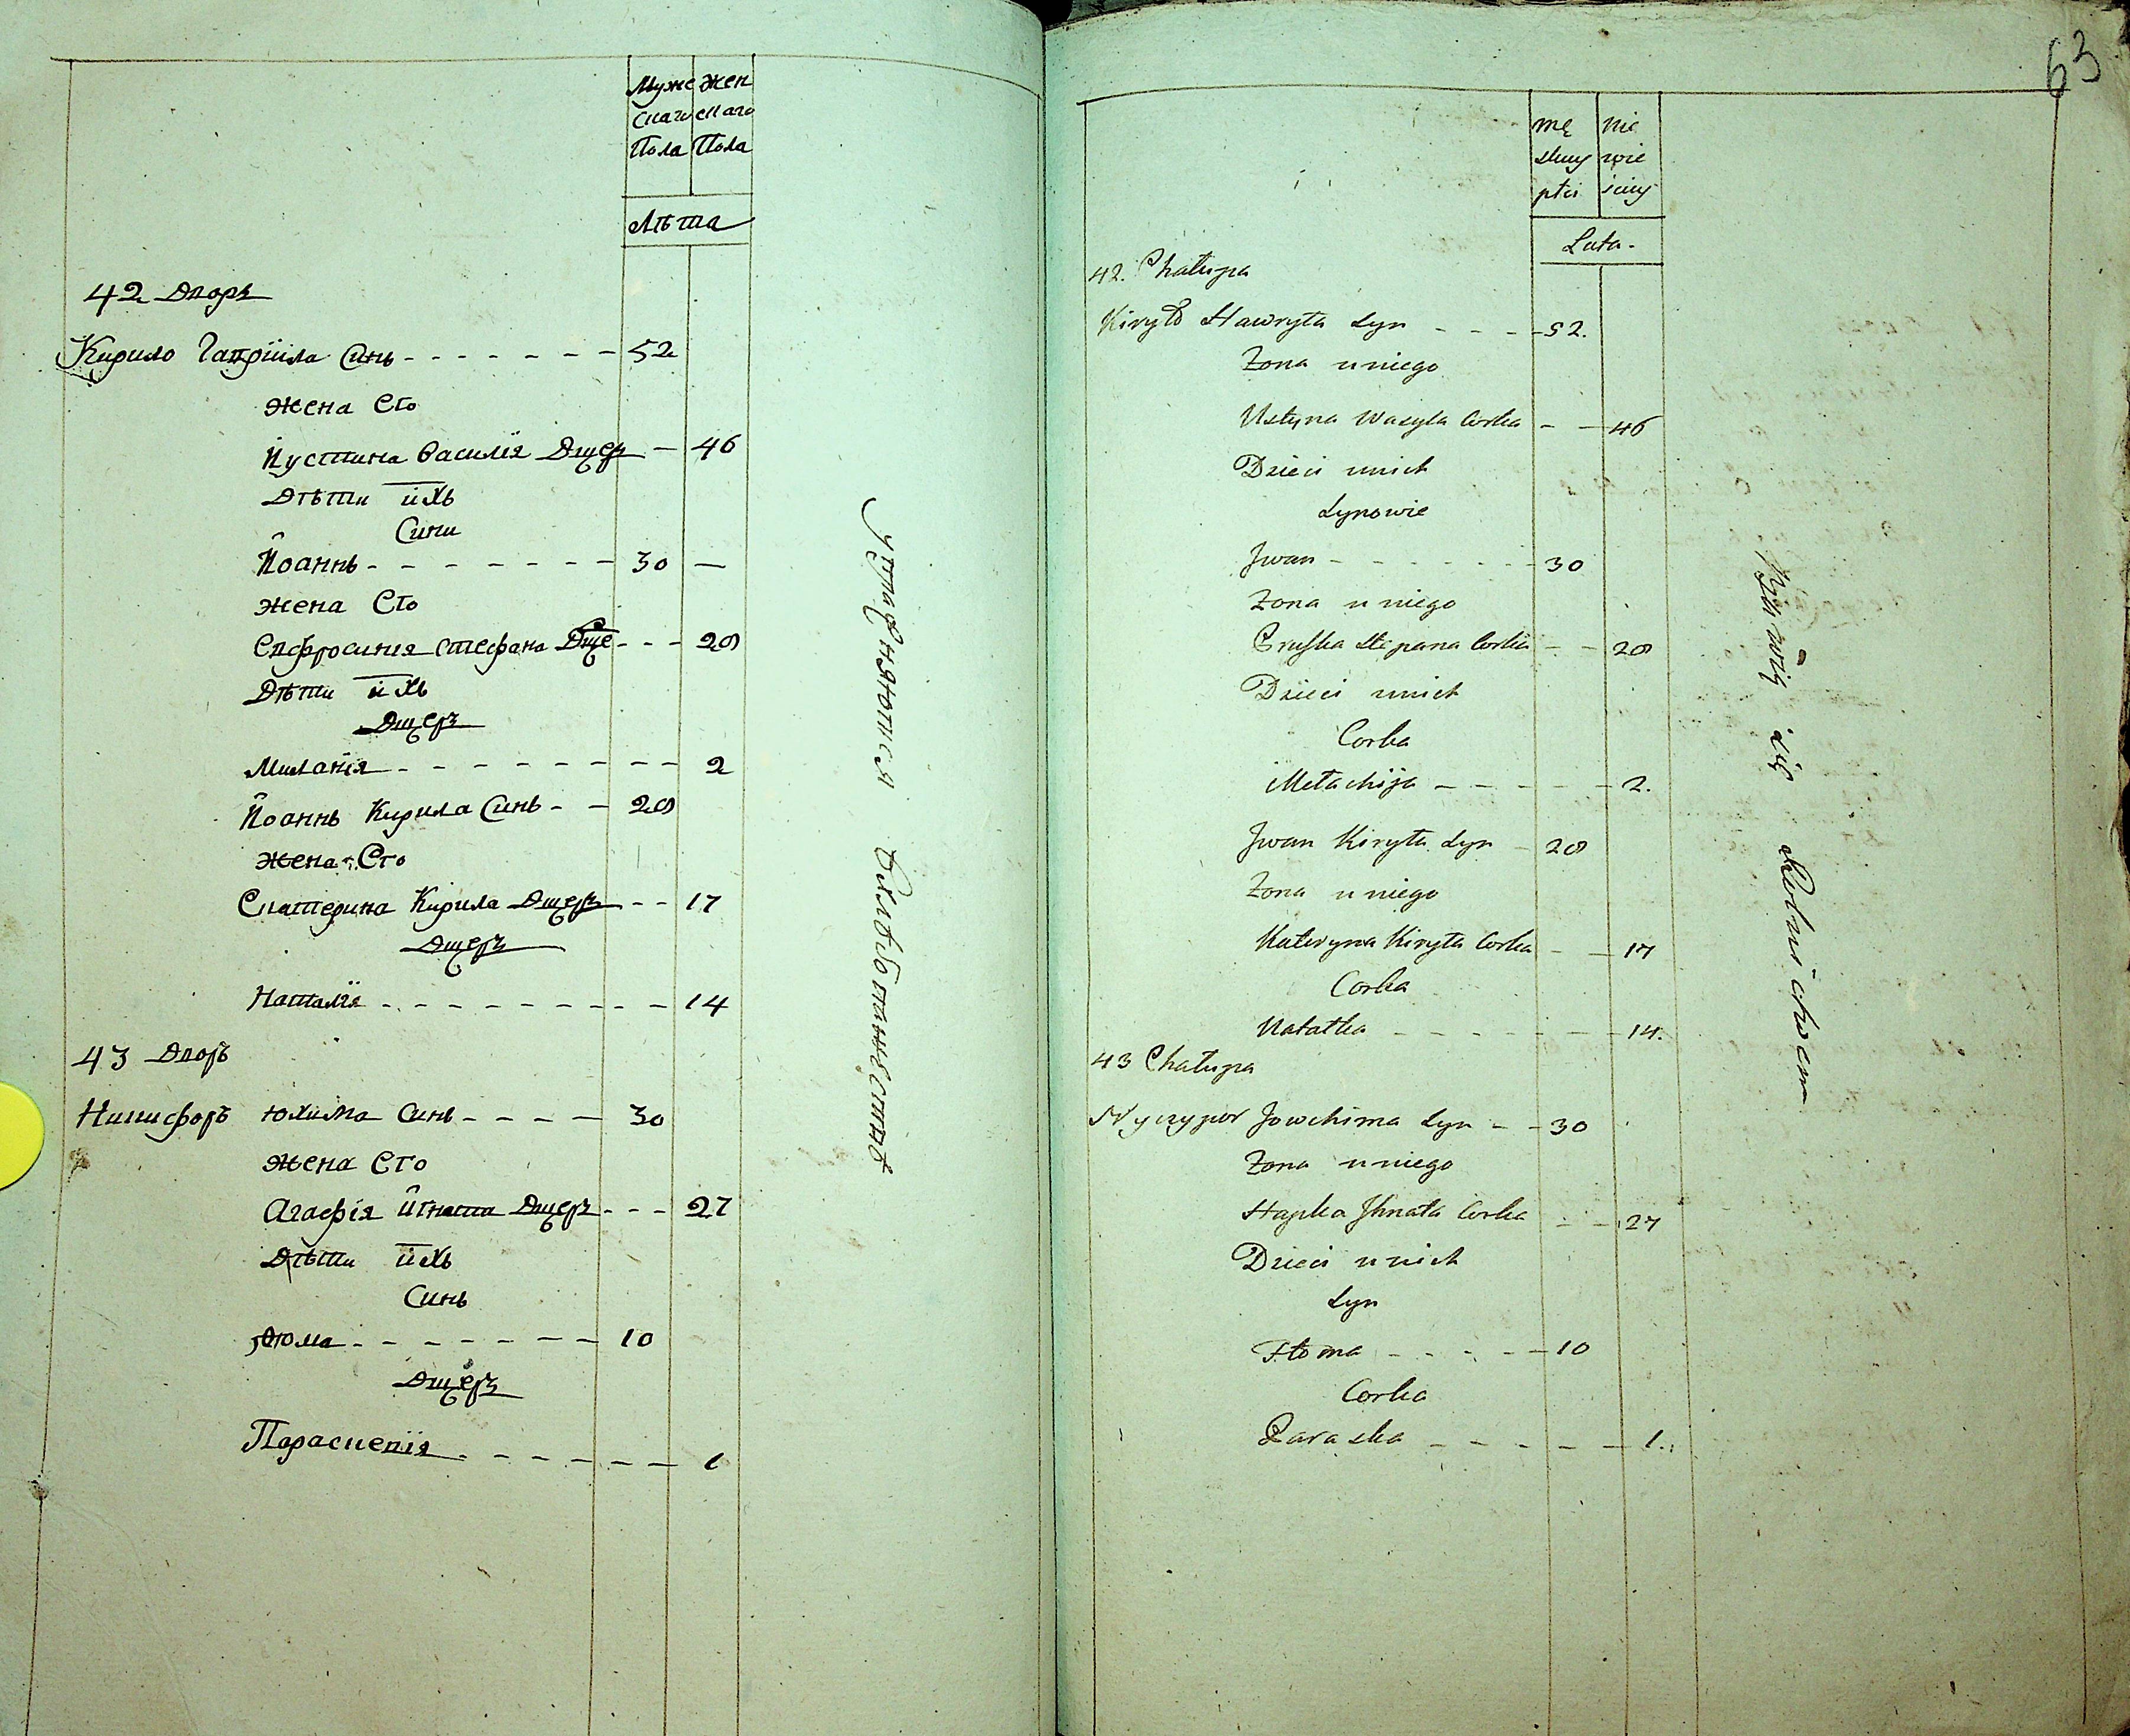 Муже Жен
скаго скаго
Пола Пола
Лѣта
42 Дворъ
Кирило Гавріила Синь - - - - - - - 52
Жена Его
Иустина Василія Дщеръ - 46
Дѣти ихъ
Сини
Иоаннъ - - - - - - - 30 -
Жена Его
Евфросинія Стефана Дще - - - 28
Дѣти ихъ
Дщеръ
Миланія - - - - - - - - 2
Иоаннъ Кирила Синъ - - 28
Жена Его
Екатерина Кирила Дщеръ - - 17
Дщеръ
Наталія - - - - - - - - - 14
43 Дворъ
Никифоръ Юхима Синъ - - - - 30
Жена Его
Агафія Игната Дщеръ - - - 27
Дѣти ихъ
Синъ
Фома - - - - - - - 10
Дщеръ
Параскевія - - - - - - 1
упражняются хлѣбопашествомъ
63
mę nie
skuy wie
płci sciuy
Luta.
42. Chałupa
Kiryło Hawryła Syn - - - - 52.
Zona u niego
Ustyna Wasyla Corka - - 46
Dzieci u nich
Synowie
Jwan - - - - - - - 30
Zona u niego
Pruska Stepana Corka - - 28
Dzieci u nich
Corka
Mełachija - - - - - 2.
Jwan Kiryła Syn - 28
Zona u niego
Kateryna Kiryła Corka - - 17
Corka
Natałka - - - - - - - 14.
43 Chałupa
Nyczypor Jowchima Syn - - 30
Zona u niego
Hapka Jhnata Corka - - 27
Dzieci u nich
Syn
Htoma - - - - - 10
Corka
Paraska - - - - - 1.
się Rolnictwem